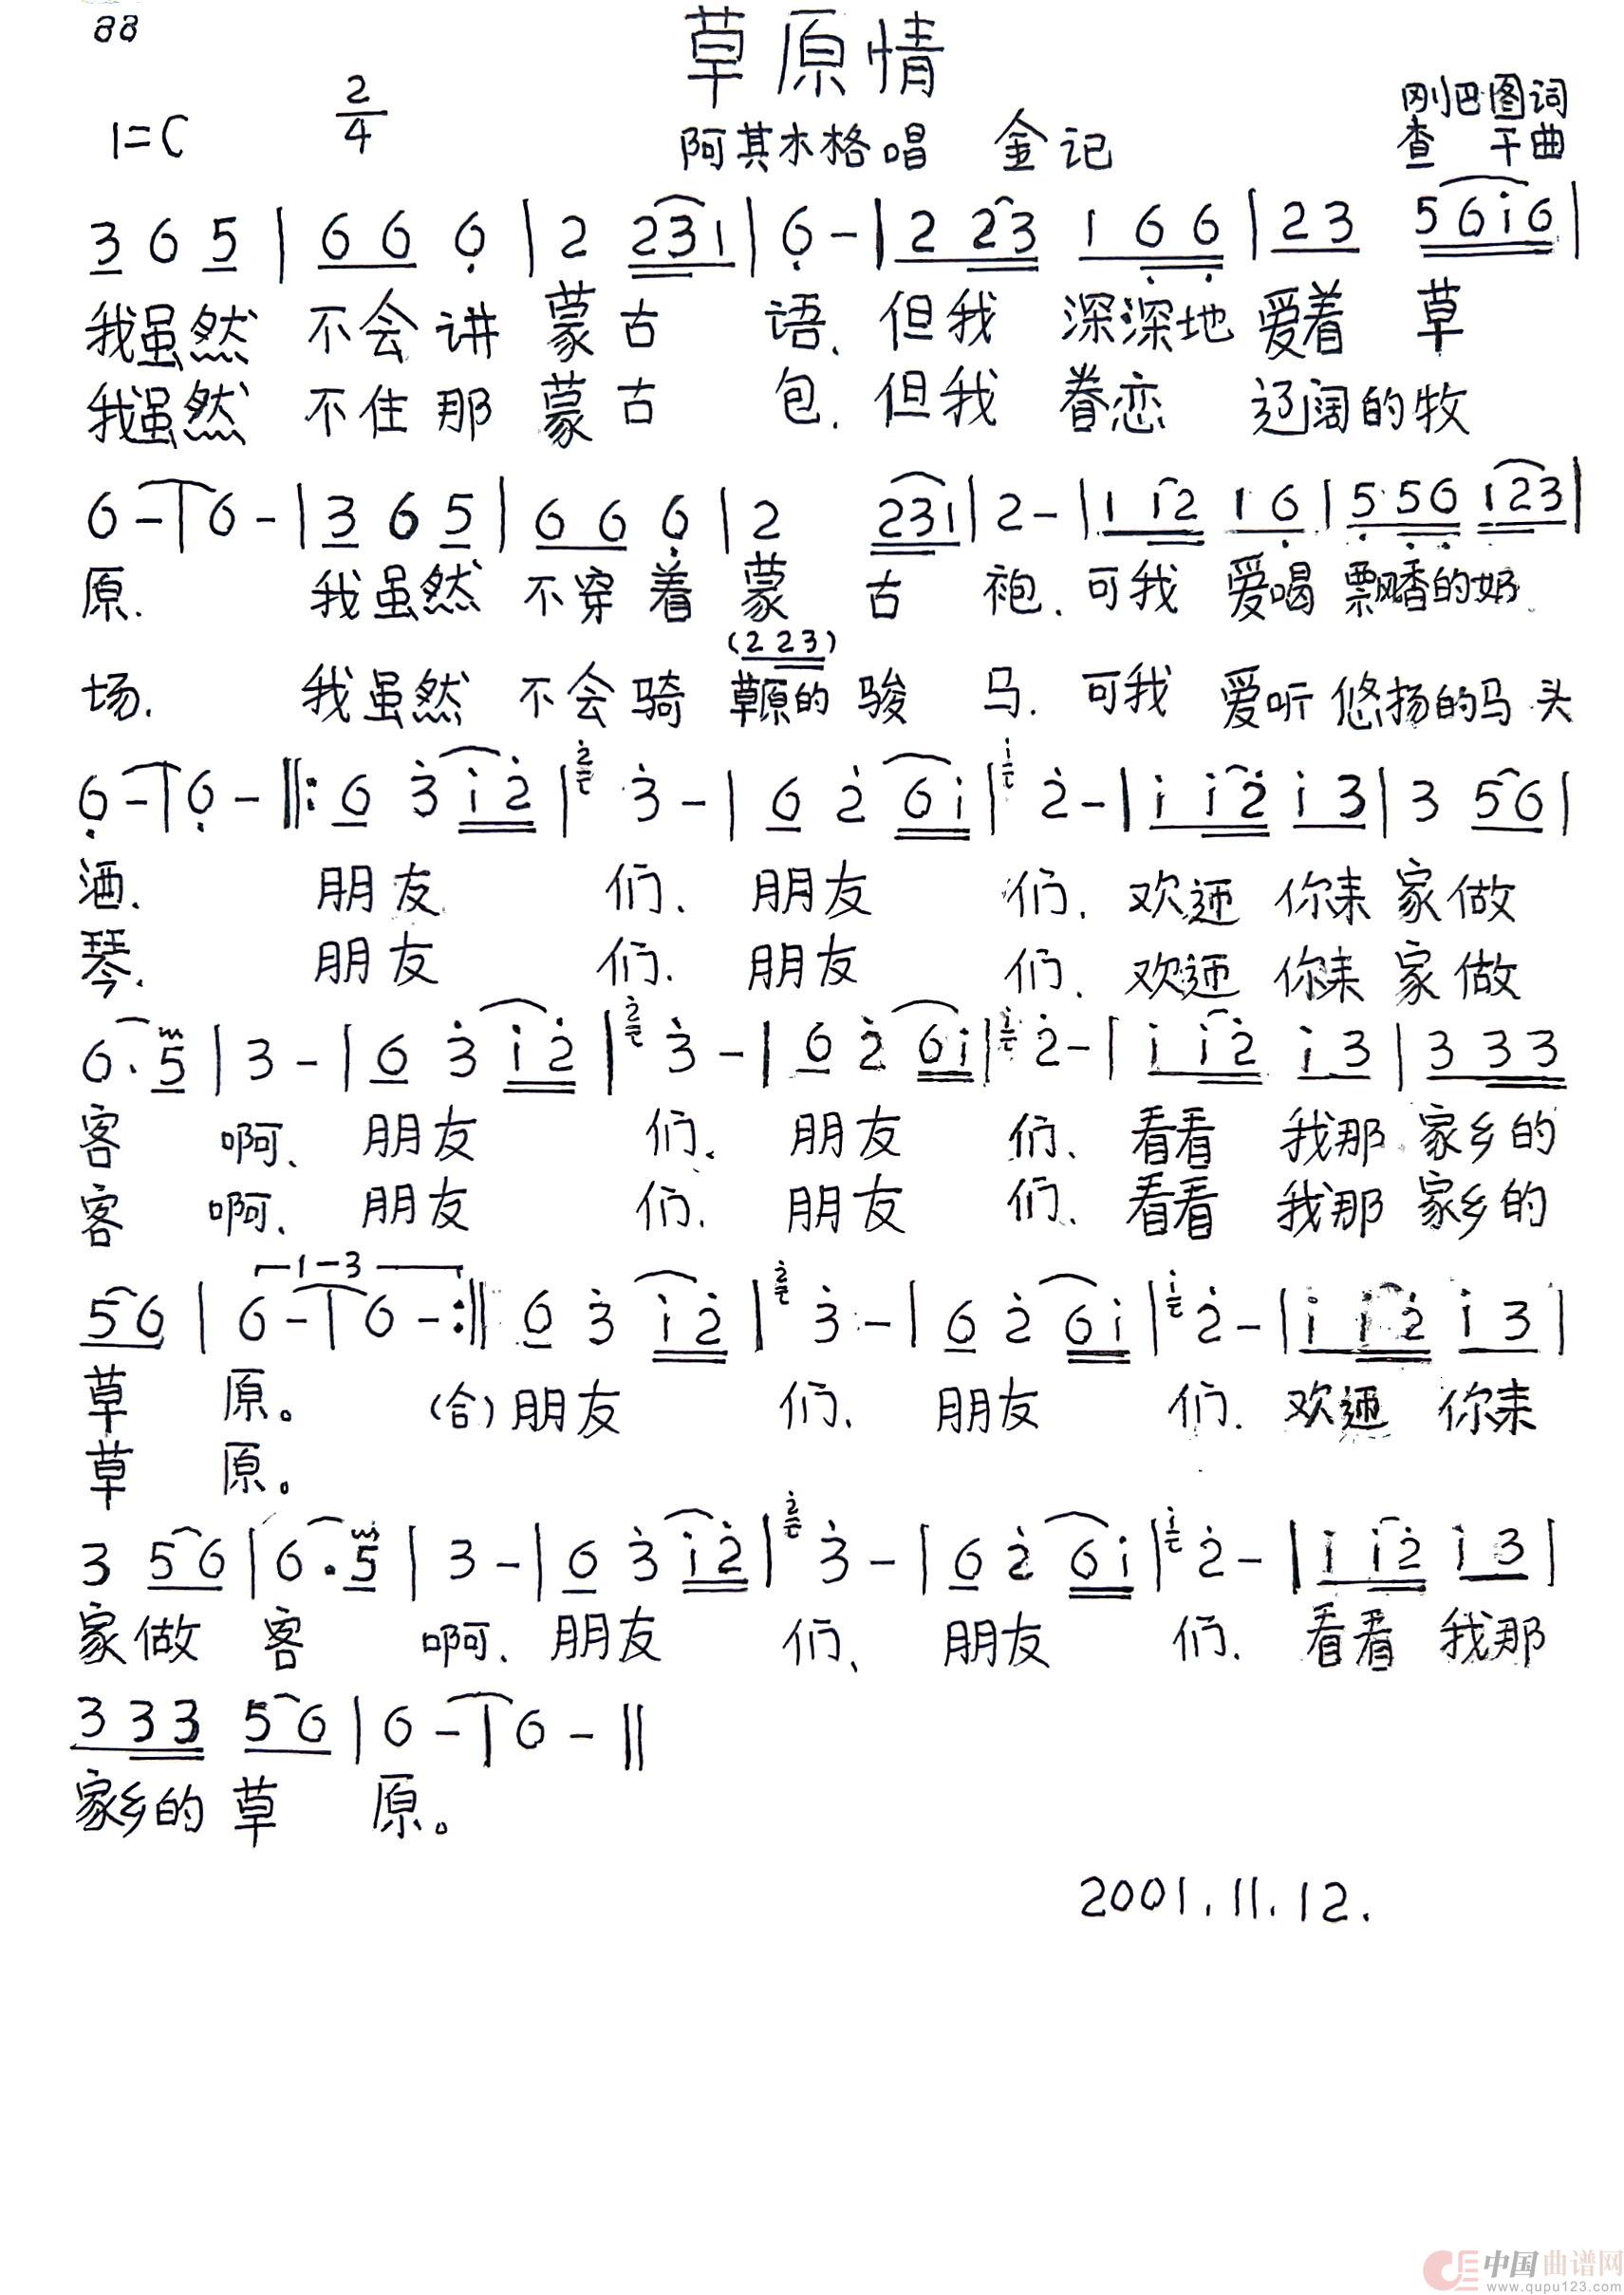 88
草原情
1=C 2/4
刚巴图词
阿其木格唱 金记
查 干曲
3 6 5 | 6 6 6̣ | 2 2 3 1 | 6̣ - | 2 2 3 1 6̣ 6̣ | 2 3 5 6 i 6 |
我虽然 不会讲 蒙古 语、但我 深深地 爱着 草
我虽然 不住那 蒙古 包. 但我 眷恋 辽阔的牧
6 - | 6 - | 3 6 5 | 6 6 6̣ | 2 2 3 1 | 2 - | 1 1 2 1 6̣ | 5̣ 5̣ 6̣ 1 2 3 |
原. 我虽然 不穿着 蒙 古 袍. 可我 爱喝 飘香的奶
(2 2 3)
场. 我虽然 不会骑 草原的 骏 马. 可我 爱听 悠扬的马头
6̣ - | 6̣ - ‖: 6 3̇ i 2̇ | 2̇ 3̇ - | 6 2̇ 6 i | i 2̇ - | i i 2̇ i 3 | 3 5 6 |
酒. 朋友 们、朋友 们. 欢迎 你来 家做
琴. 朋友 们. 朋友 们. 欢迎 你来 家做
6 · 5 | 3 - | 6 3̇ i 2̇ | 2̇ 3̇ - | 6 2̇ 6 i | i 2̇ - | i i 2̇ i 3 | 3 3 3
客 啊、朋友 们、朋友 们、看看 我那 家乡的
客 啊、朋友 们. 朋友 们、看看 我那 家乡的
1-3
5 6 | 6 - | 6 - :‖ 6 3̇ i 2̇ | 2̇ 3̇ - | 6 2̇ 6 i | i 2̇ - | i i 2̇ i 3 |
草 原。 (合)朋友 们、朋友 们. 欢迎 你来
草 原。
3 5 6 | 6 · 5 | 3 - | 6 3̇ i 2̇ | 2̇ 3̇ - | 6 2̇ 6 i | i 2̇ - | i i 2̇ i 3 |
家做 客 啊、朋友 们、朋友 们. 看看 我那
3 3 3 5 6 | 6 - | 6 - ‖
家乡的 草 原。
2001.11.12.
中国曲谱网
www.qupu123.com